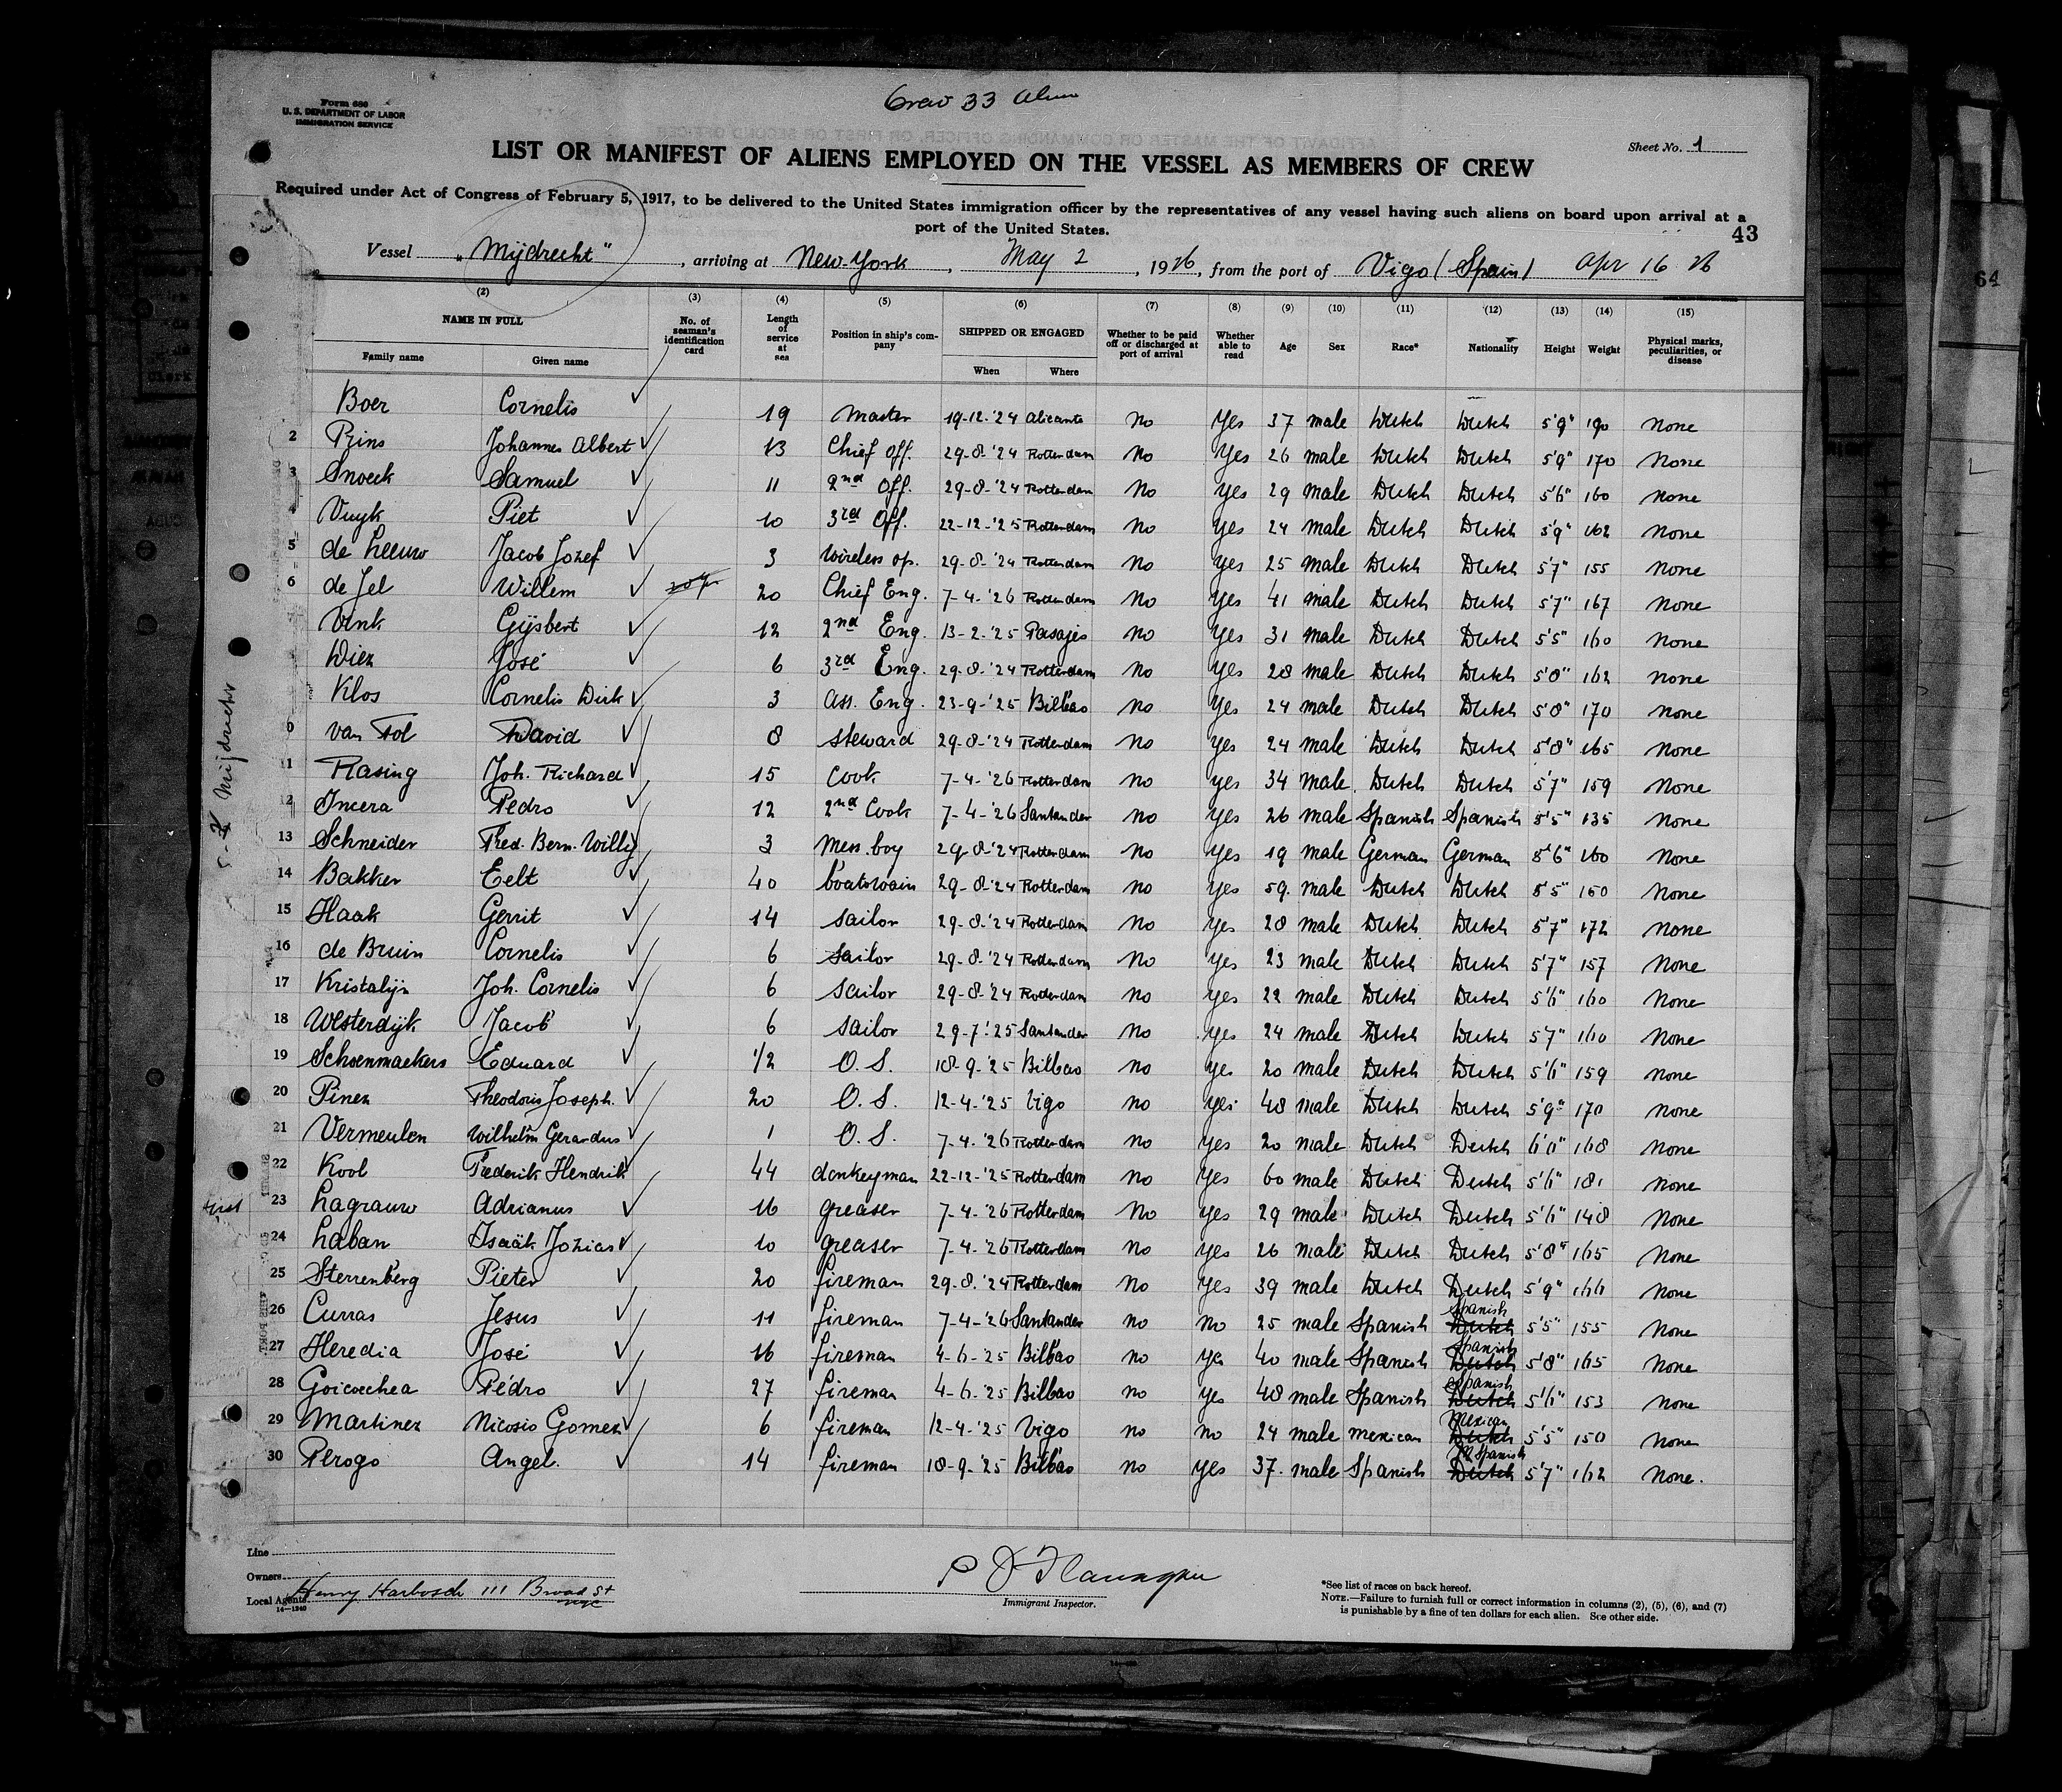 Crew 33 alien
Form 680
U. S. DEPARTMENT OF LABOR
IMMIGRATION SERVICE
Sheet No. 1
LIST OR MANIFEST OF ALIENS EMPLOYED ON THE VESSEL AS MEMBERS OF CREW
Required under Act of Congress of February 5, 1917, to be delivered to the United States immigration officer by the representatives of any vessel having such aliens on board upon arrival at a
port of the United States.
43
Vessel „Mijdrecht", arriving at New-York, May 2, 1926, from the port of Vigo (Spain) Apr 16 26
(2) (3) (4) (5) (6) (7) (8) (9) (10) (11) (12) (13) (14) (15)
NAME IN FULL Family name Given name No. of seaman's identification card Length of service at sea Position in ship's company SHIPPED OR ENGAGED When Where Whether to be paid off or discharged at port of arrival Whether able to read Age Sex Race* Nationality Height Weight Physical marks, peculiarities, or disease
Boer Cornelis 19 Master 19-12-'24 Alicante No Yes 37 male Dutch Dutch 5'9" 190 None
2 Prins Johannes Albert 13 Chief Off. 29-8-'24 Rotterdam No Yes 26 male Dutch Dutch 5'9" 170 None
3 Snoeck Samuel 11 2nd Off. 29-8-'24 Rotterdam No Yes 29 male Dutch Dutch 5'6" 160 None
4 Vuyk Piet 10 3rd Off. 22-12-'25 Rotterdam No Yes 24 male Dutch Dutch 5'9" 162 None
5 de Leeuw Jacob Jozef 3 Wireless op. 29-8-'24 Rotterdam No Yes 25 male Dutch Dutch 5'7" 155 None
6 de Jel Willem 20 Chief Eng. 7-4-'26 Rotterdam No Yes 41 male Dutch Dutch 5'7" 167 None
7 Vink Gijsbert 12 2nd Eng. 13-2-'25 Pasajes No Yes 31 male Dutch Dutch 5'5" 160 None
Wiez José 6 3rd Eng. 29-8-'24 Rotterdam No Yes 28 male Dutch Dutch 5'8" 162 None
Klos Cornelis Dirk 3 Ass. Eng. 23-9-'25 Bilbao No Yes 24 male Dutch Dutch 5'8" 170 None
0 van Tol David 8 Steward 29-8-'24 Rotterdam No Yes 24 male Dutch Dutch 5'8" 165 None
11 Rasing Joh. Richard 15 Cook 7-4-'26 Rotterdam No Yes 34 male Dutch Dutch 5'7" 159 None
12 Incera Pedro 12 2nd Cook 7-4-'26 Santander No Yes 26 male Spanish Spanish 5'5" 135 None
13 Schneider Fred. Bern. Willy 3 Mess.boy 29-8-'24 Rotterdam No Yes 19 male German German 5'6" 160 None
14 Bakker Eelt 40 boatswain 29-8-'24 Rotterdam No Yes 59 male Dutch Dutch 5'5" 150 None
15 Haak Gerrit 14 sailor 29-8-'24 Rotterdam No Yes 28 male Dutch Dutch 5'7" 172 None
16 de Bruin Cornelis 6 sailor 29-8-'24 Rotterdam No Yes 23 male Dutch Dutch 5'7" 157 None
17 Kristalijn Joh. Cornelis 6 sailor 29-8-'24 Rotterdam No Yes 22 male Dutch Dutch 5'6" 160 None
18 Westerdijk Jacob 6 sailor 29-7-'25 Santander No Yes 24 male Dutch Dutch 5'7" 160 None
19 Schoenmaekers Eduard 1/2 O. S. 18-9-'25 Bilbao No Yes 20 male Dutch Dutch 5'6" 159 None
20 Pinez Theodoris Joseph. 20 O. S. 12-4-'25 Vigo No Yes 48 male Dutch Dutch 5'9" 170 None
21 Vermeulen Wilhelm Gerardus 1 O. S. 7-4-'26 Rotterdam No Yes 20 male Dutch Dutch 6'0" 168 None
22 Kool Frederik Hendrik 44 donkeyman 22-12-'25 Rotterdam No Yes 60 male Dutch Dutch 5'6" 181 None
23 Lagrauw Adrianus 16 greaser 7-4-'26 Rotterdam No Yes 29 male Dutch Dutch 5'6" 148 None
24 Laban Isaäk Jozias 10 greaser 7-4-'26 Rotterdam No Yes 26 male Dutch Dutch 5'8" 165 None
25 Sterrenberg Pieter 20 fireman 29-8-'24 Rotterdam No Yes 39 male Dutch Dutch 5'9" 166 None
26 Curras Jesus 11 fireman 7-4-'26 Santander No No 25 male Spanish Dutch Spanish 5'5" 155 None
27 Heredia José 16 fireman 4-6-'25 Bilbao No Yes 40 male Spanish Dutch Spanish 5'8" 165 None
28 Goicoechea Pédro 27 fireman 4-6-'25 Bilbao No Yes 48 male Spanish Dutch Spanish 5'6" 153 None
29 Martinez Nicosio Gomez 6 fireman 12-4-'25 Vigo No No 24 male Mexican Dutch Mexican 5'5" 150 None
30 Perogo Angel. 14 fireman 18-9-'25 Bilbao No Yes 37. male Spanish Dutch Spanish 5'7" 162 None.
Mijdrecht
Line
Owners
Local Agents Henry Harbosch 111 Broad St
nyc
14—1240
Immigrant Inspector.
*See list of races on back hereof.
NOTE.—Failure to furnish full or correct information in columns (2), (5), (6), and (7)
is punishable by a fine of ten dollars for each alien. See other side.
64